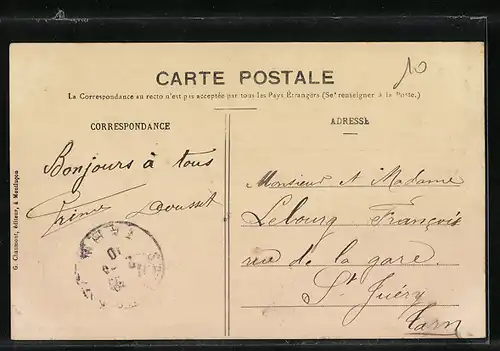 10
CARTE POSTALE
La Correspondance au recto n'est pas acceptée par tous les Pays Étrangers (Se renseigner à la Poste.)
CORRESPONDANCE
ADRESSE
Bonjours à tous
Dousset
Monsieur et Madame
Lebourg François
rue de la gare
St Juéry
Tarn
G. Chaumont, éditeur, à Montluçon